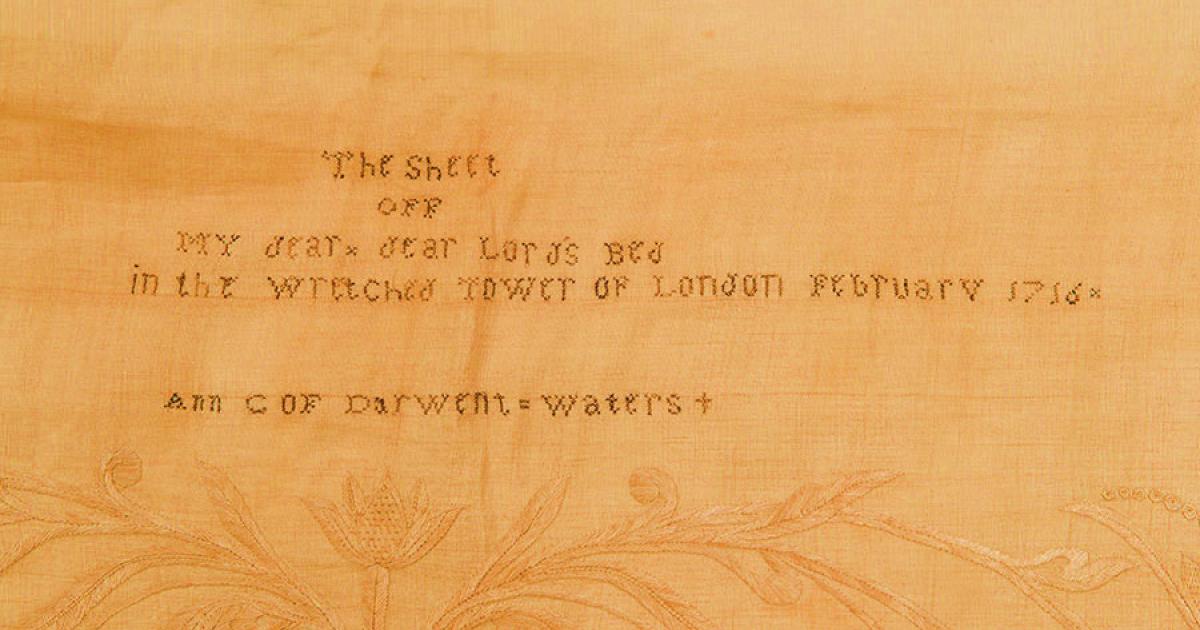 The Sheet
OFF
MY dear× dear Lord's Bed
in the Wretched Tower OF London February 1716×
Ann C OF Darwent=Waters+